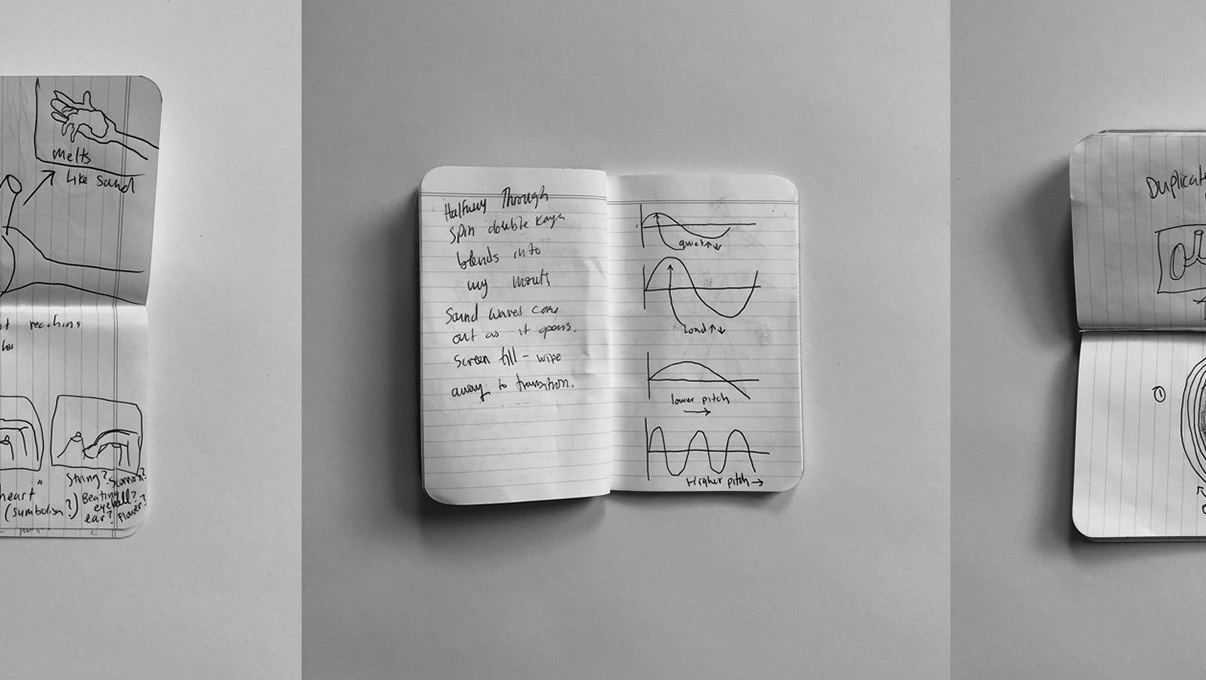 Melts
like sand
reaching
heart"
(symbolism?)
String?
Beating
eyeball?
ear? Flower?
Halfway Through
spin double
blends into
my mouth
Sound waves come
out as it opens.
Screen fill - wipe
away to transition.
quiet ↑↓
Loud ↑↓
lower pitch
→
Higher pitch →
Duplicate
①